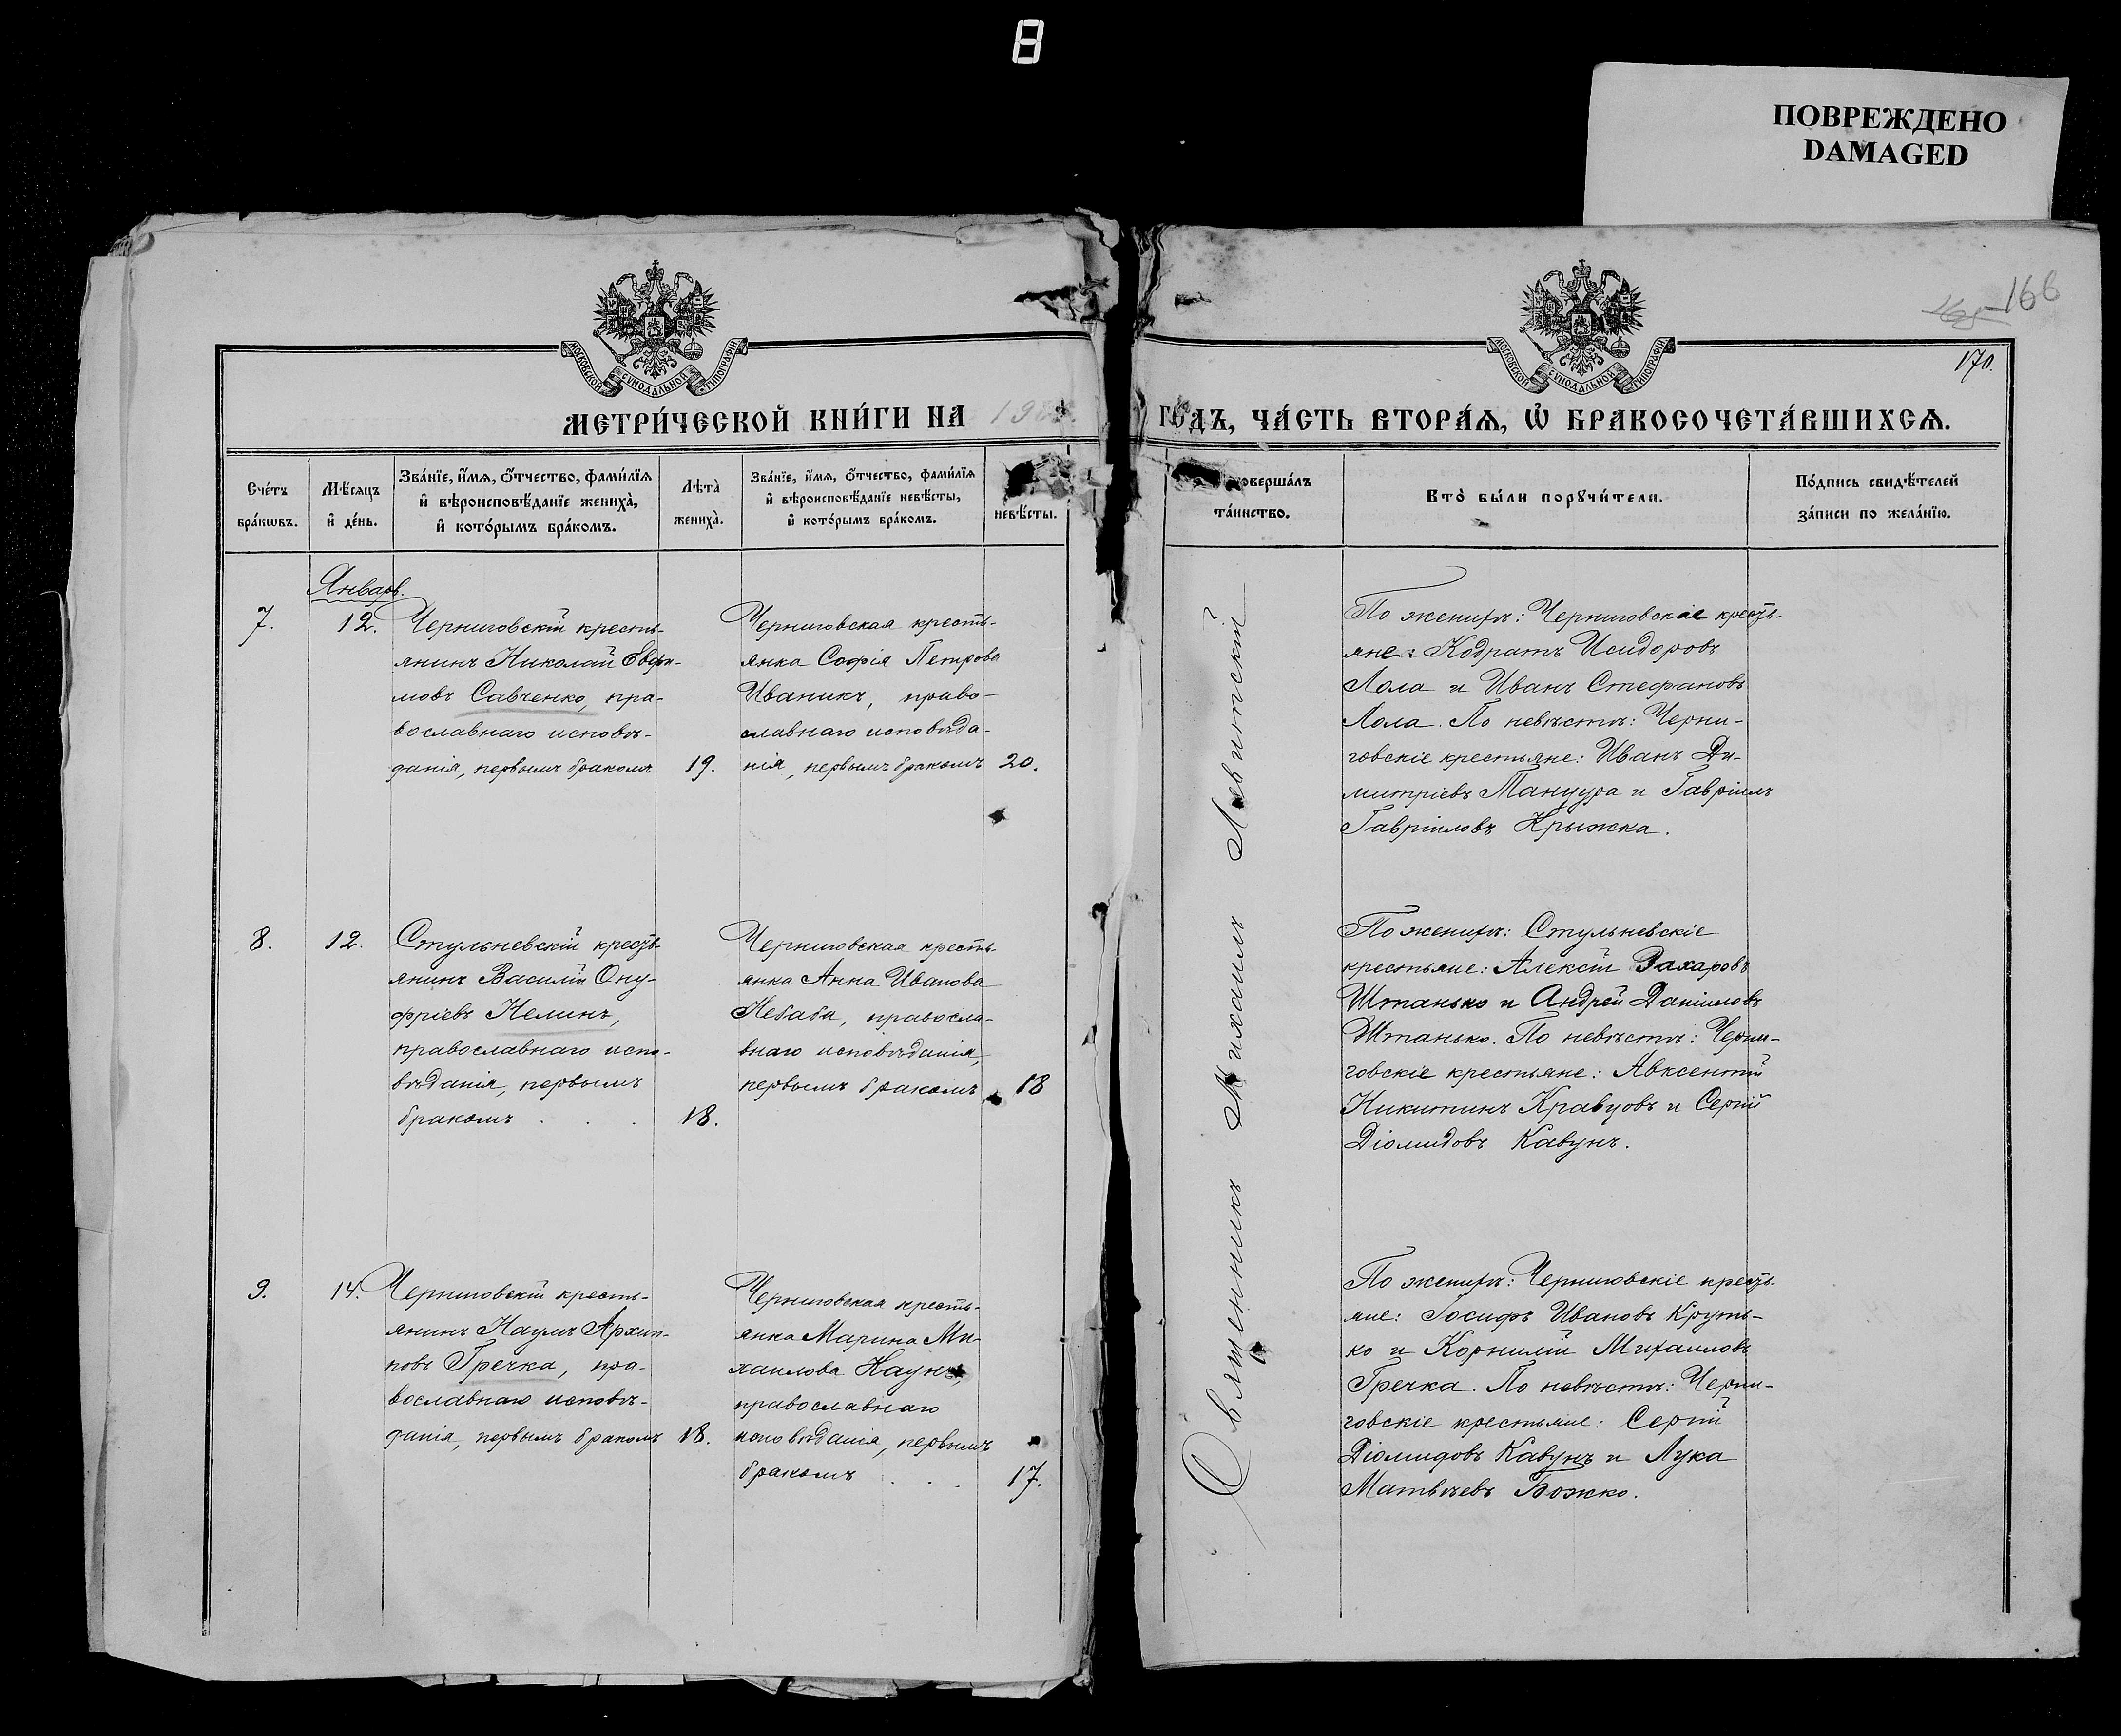 8
ПОВРЕЖДЕНО
DAMAGED
166
170.
МОСКОВСКОЙ СУНОДАЛЬНОЙ ТИПОГРАФІИ
МОСКОВСКОЙ СУНОДАЛЬНОЙ ТИПОГРАФІИ
МЕТРИ́ЧЕСКОЙ КНИ́ГИ НА
ГОДЪ, ЧА́СТЬ ВТОРА́Ѧ, Ѽ БРАКОСОЧЕТА́ВШИХСѦ.
Сче́тъ
бра́кωвъ.
Мѣ́сѧцъ
и҆ де́нь.
Зва́нїе, и҆́мѧ, ѻ҆́тчество, фами́лїѧ
и҆ вѣроисповѣ́данїе жениха̀,
и҆ кото́рымъ бра́комъ.
Лѣ́та̀
жениха̀.
Зва́нїе, и҆́мѧ, ѻ҆́тчество, фами́лїѧ
и҆ вѣроисповѣ́данїе невѣ́сты,
и҆ кото́рымъ бра́комъ.
невѣ́сты.
соверша́лъ
та́инство.
Кто̀ бы́ли порꙋчи́тели.
По́дпись свидѣ́телей
за́писи по жела́нїю.
Январь.
7.
12.
Черниговскій кресть-
янинъ Николай Евфи-
мовъ Савченко, пра-
вославнаго исповѣ-
данія, первымъ бракомъ
19.
Черниговская кресть-
янка Софія Петрова
Иваникъ, право-
славнаго исповѣда-
нія, первымъ бракомъ
20.
Священникъ Михаилъ Левитскій
По женихѣ: Черниговскіе кресть-
яне: Кодратъ Исидоровъ
Лола и Иванъ Стефановъ
Лола. По невѣстѣ: Черни-
говскіе крестьяне: Иванъ Ди-
митріевъ Танцура и Гавріилъ
Гавріиловъ Крыжка.
8.
12.
Стульневскій кресть-
янинъ Василій Ону-
фріевъ Келинъ,
православнаго испо-
вѣданія, первымъ
бракомъ . . .
18.
Черниговская кресть-
янка Анна Иванова
Небаба, правосла-
внаго исповѣданія,
первымъ бракомъ
18
По женихѣ: Стульневскіе
крестьяне: Алексій Захаровъ
Штанько и Андрей Даніиловъ
Штанько. По невѣстѣ: Черни-
говскіе крестьяне: Авксентій
Никитинъ Кравцовъ и Сергій
Діомидовъ Кавунъ.
9.
14.
Черниговскій кресть-
янинъ Наумъ Архип-
повъ Гречка, пра-
вославнаго исповѣ-
данія, первымъ бракомъ
18.
Черниговская кресть-
янка Марина Ми-
хаилова Каунъ,
православнаго
исповѣданія, первымъ
бракомъ . . .
17.
По женихѣ: Черниговскіе кресть-
яне: Іосифъ Ивановъ Круть-
ко и Корнилій Михаиловъ
Гречка. По невѣстѣ: Черни-
говскіе крестьяне: Сергій
Діомидовъ Кавунъ и Лука
Матвѣевъ Божко.